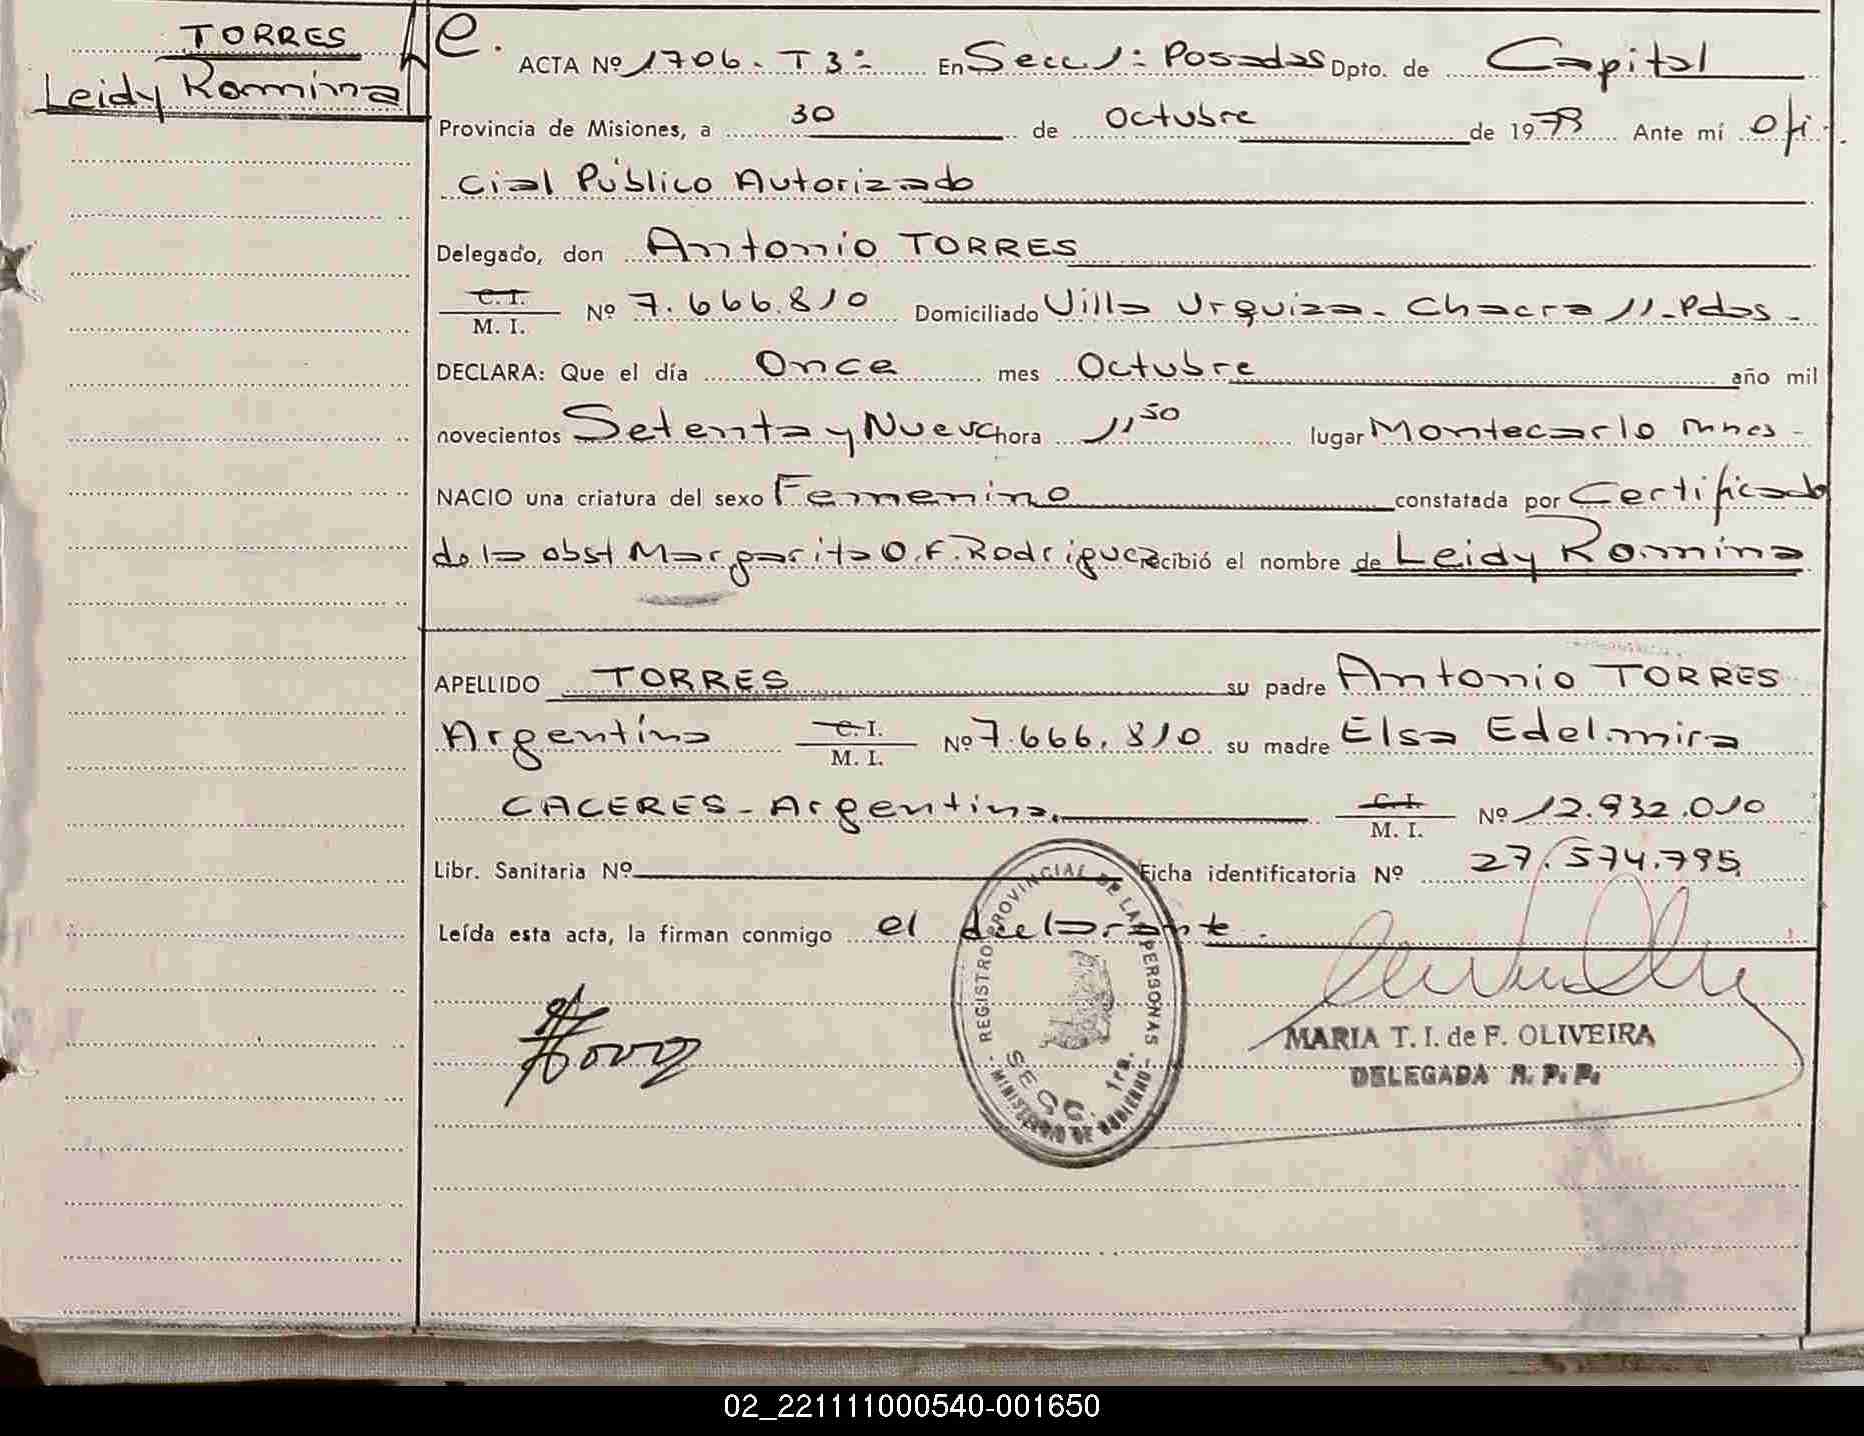 TORRES
Leidy Romina
e.
ACTA Nº 1706. T 3º En Secc 1ª Posadas Dpto. de Capital
Provincia de Misiones, a 30 de Octubre de 1979 Ante mí Ofi-
cial Público Autorizado
Delegado, don Antonio TORRES
C. I.
M. I. Nº 7.666.810 Domiciliado Villa Urquiza - Chacra 11 - Pdas -
DECLARA: Que el día Once mes Octubre año mil
novecientos Setenta y Nueve hora 11 50 lugar Montecarlo Mnes -
NACIO una criatura del sexo Femenino constatada por Certificado
de la obst Margarita O. F. Rodriguez recibió el nombre de Leidy Romina
APELLIDO TORRES su padre Antonio TORRES
Argentino C. I. M. I. Nº 7.666.810 su madre Elsa Edelmira
CACERES - Argentina. C. I. M. I. Nº 12.932.010
Libr. Sanitaria Nº Ficha identificatoria Nº 27.574.795
Leída esta acta, la firman conmigo el declarante.
REGISTRO PROVINCIAL DE LAS PERSONAS
SECC. 1ra.
MINISTERIO DE GOBIERNO
MARIA T. I. de F. OLIVEIRA
DELEGADA R. P. P.
02_221111000540-001650